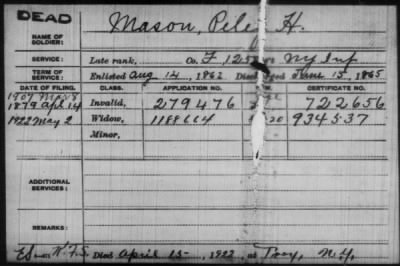 DEAD
Mason, Peleg H.
NAME OF SOLDIER:
SERVICE: Late rank, Co. F 125 N.Y. Inf
TERM OF SERVICE: Enlisted Aug 14, 1862 June 15, 1865
DATE OF FILING. CLASS. APPLICATION NO. CERTIFICATE NO.
1907
1879 Apl 14 Invalid, 279476 722656
1922 May 2 Widow, 1188664 934537
Minor,
ADDITIONAL SERVICES:
REMARKS:
Died April 15, 1922, at Troy, N.Y.